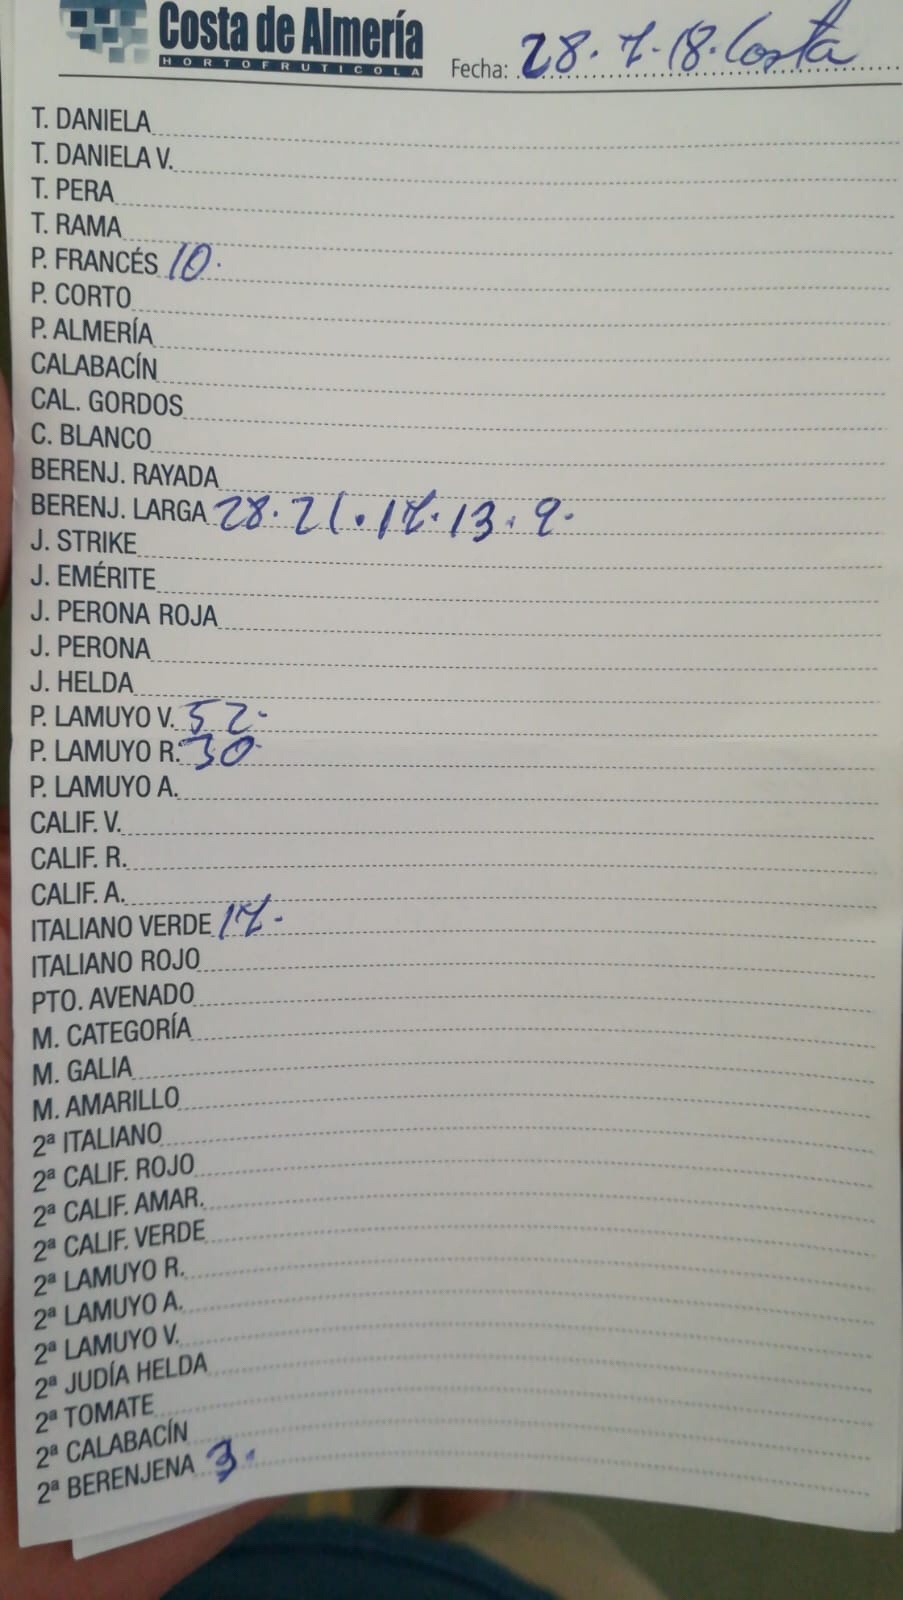 Costa de Almería
HORTOFRUTICOLA
Fecha: 28. 7. 18. Costa
T. DANIELA
T. DANIELA V.
T. PERA
T. RAMA
P. FRANCÉS 10.
P. CORTO
P. ALMERÍA
CALABACÍN
CAL. GORDOS
C. BLANCO
BERENJ. RAYADA
BERENJ. LARGA 28. 21. 17. 13. 9.
J. STRIKE
J. EMÉRITE
J. PERONA ROJA
J. PERONA
J. HELDA
P. LAMUYO V. 52.
P. LAMUYO R. 30
P. LAMUYO A.
CALIF. V.
CALIF. R.
CALIF. A.
ITALIANO VERDE 17.
ITALIANO ROJO
PTO. AVENADO
M. CATEGORÍA
M. GALIA
M. AMARILLO
2ª ITALIANO
2ª CALIF. ROJO
2ª CALIF. AMAR.
2ª CALIF. VERDE
2ª LAMUYO R.
2ª LAMUYO A.
2ª LAMUYO V.
2ª JUDÍA HELDA
2ª TOMATE
2ª CALABACÍN
2ª BERENJENA 3.